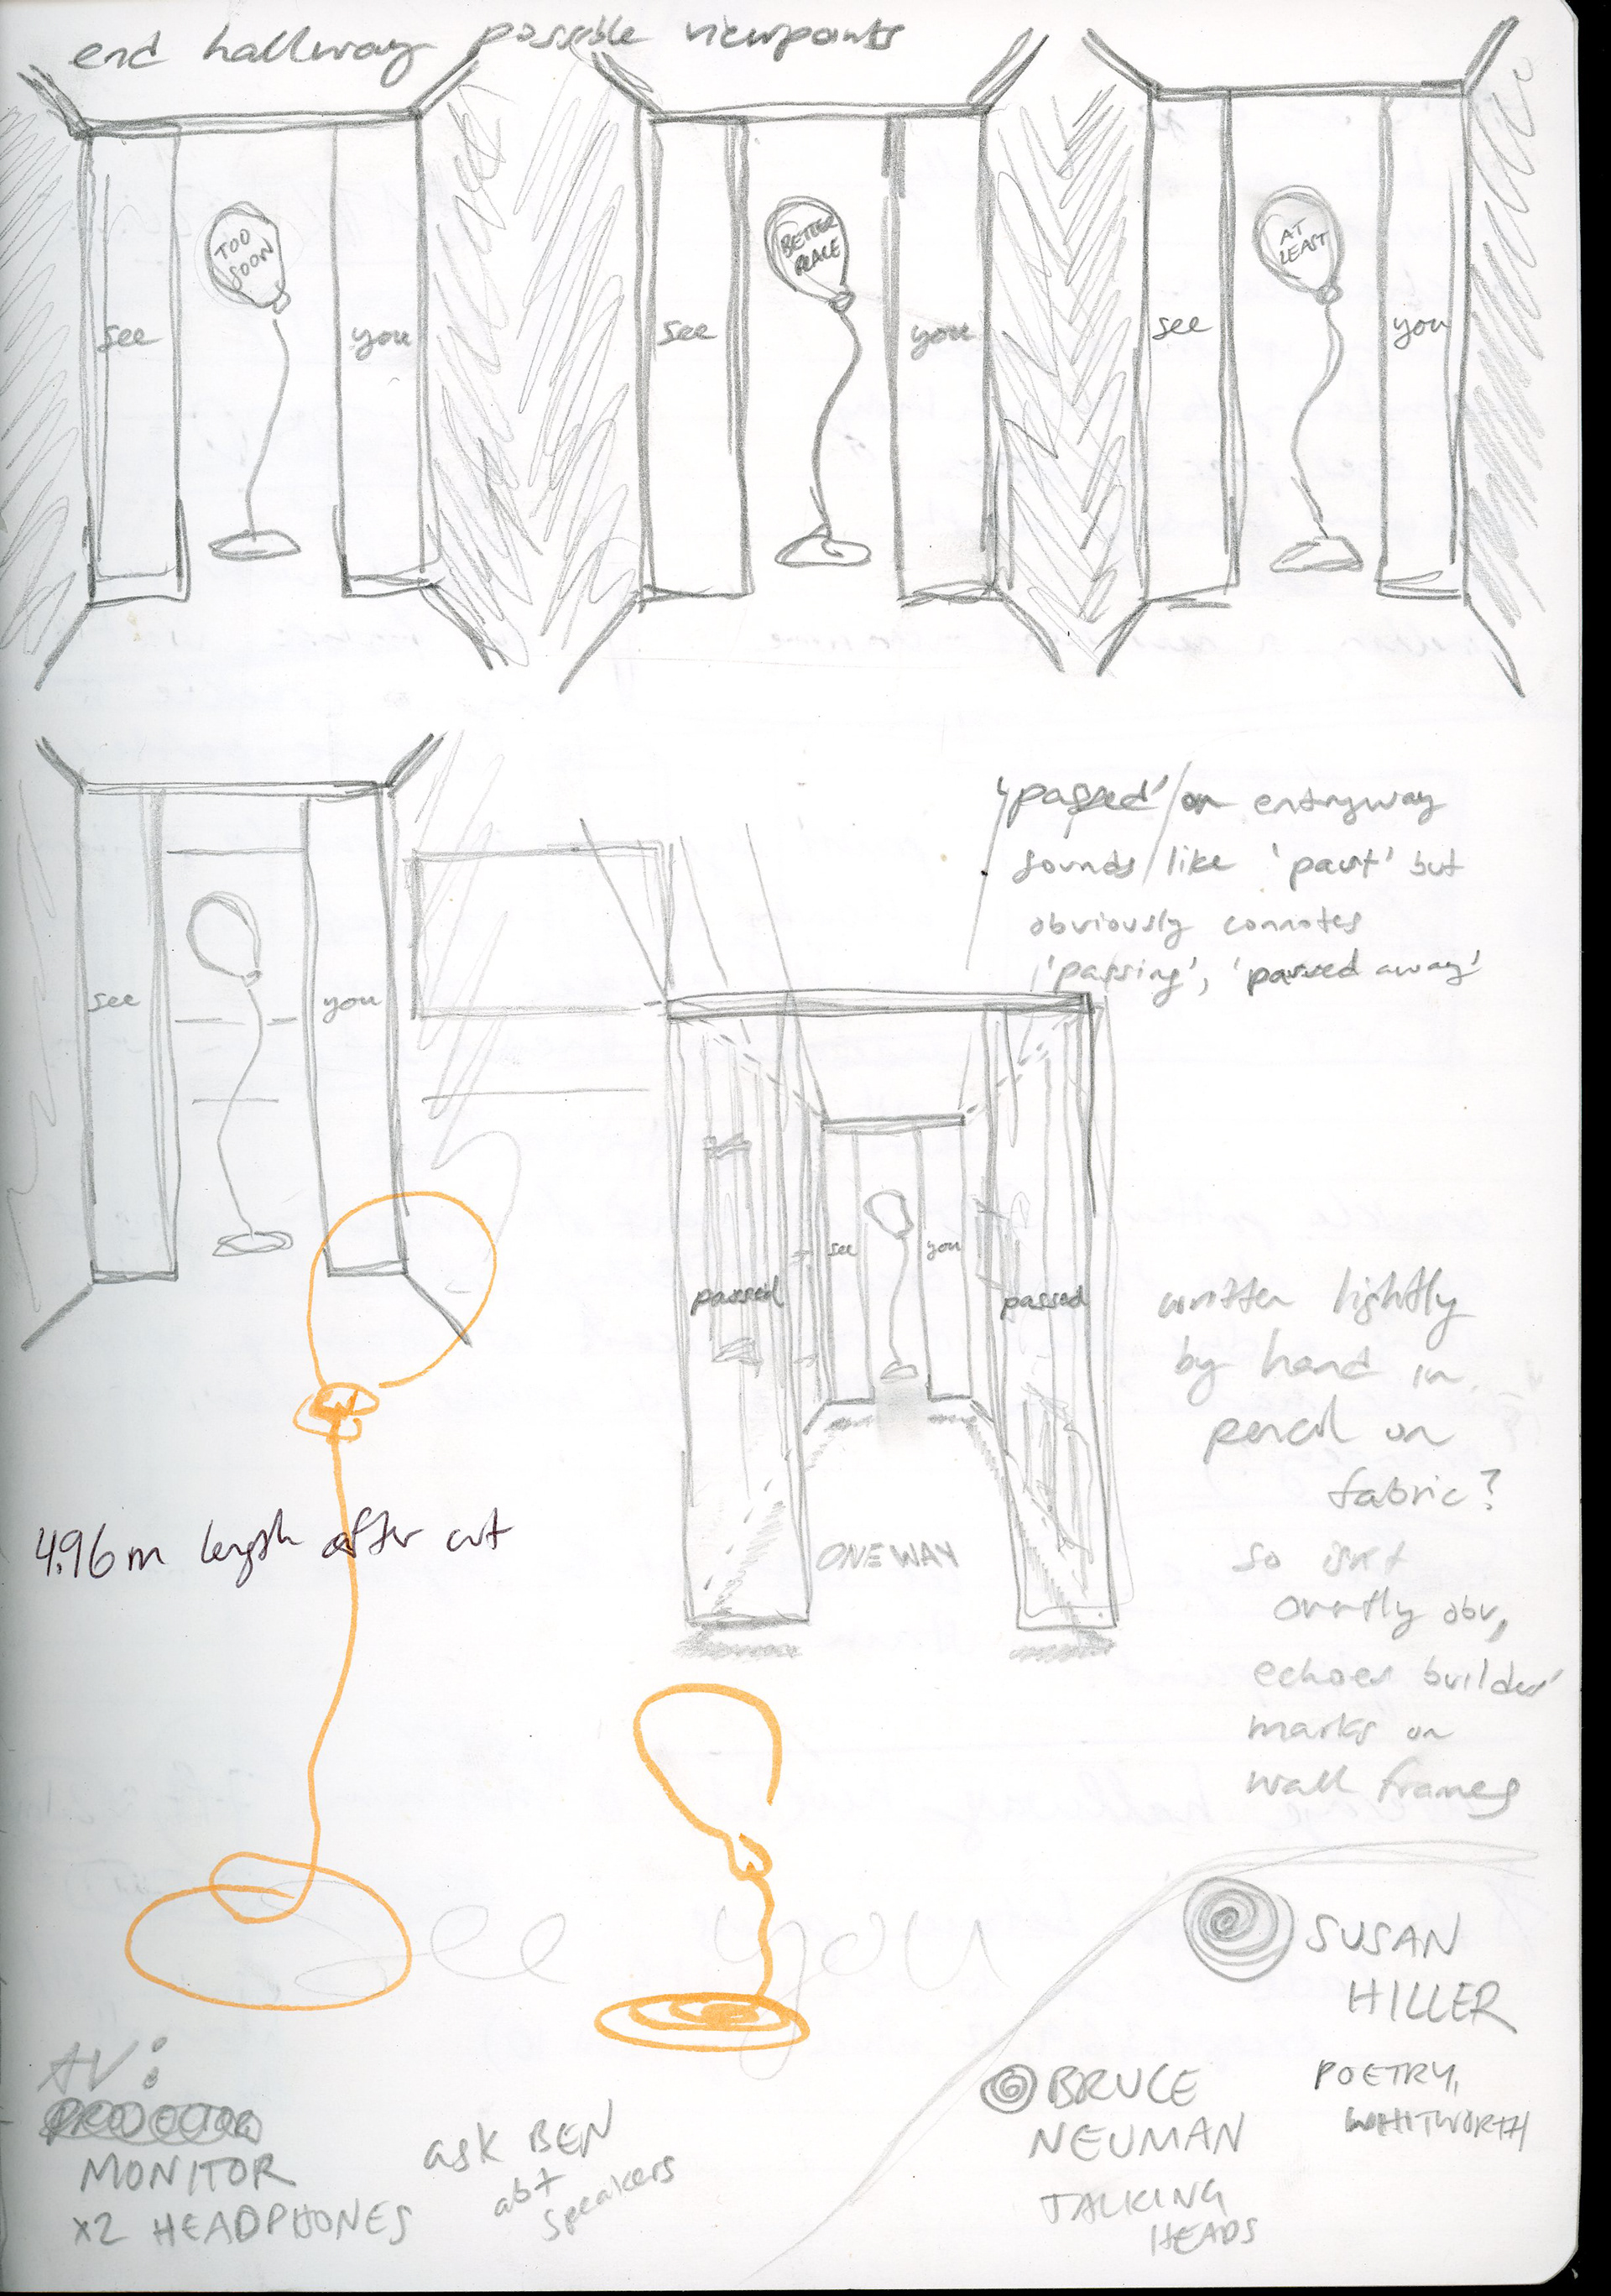 end hallway possible viewpoints
TOO
SOON
see
you
BETTER
PLACE
see
you
AT
LEAST
see
you
see
you
'passed' on entryway
sounds like 'past' but
obviously connotes
'passing', 'passed away'
see
you
passed
passed
ONE WAY
written lightly
by hand in
pencil on
fabric?
so isnt
overtly obv,
echoes builders'
marks on
wall frames
4.96m length after cut
see you
SUSAN
HILLER
POETRY,
WHITWORTH
BRUCE
NEUMAN
TALKING
HEADS
AV:
PROJECTOR
MONITOR
x2 HEADPHONES
ask BEN
abt
speakers